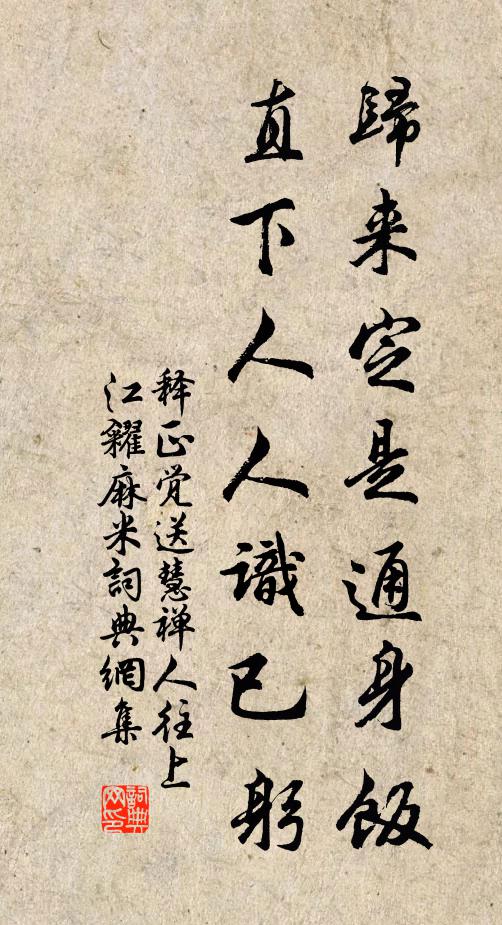 歸来定是通身飯
直下人人識己躬
释正觉送慧禅人往上
江糴麻米詞典網集
詞典
网印